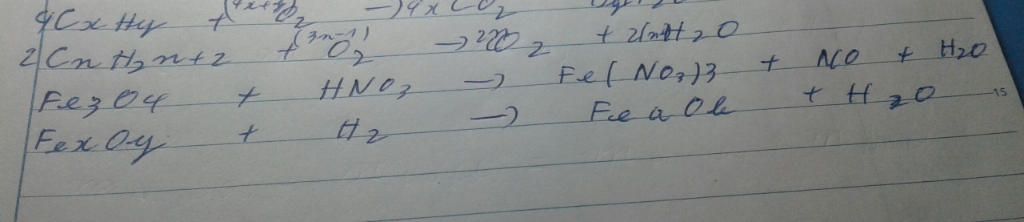 4CxHy + (4x+y)O2 → 4xCO2
2CnH2n+2 + (3n-1)O2 → 2CO2 + 2(n+1)H2O
Fe3O4 + HNO3 → Fe(NO3)3 + NO + H2O
FexOy + H2 → FeaOb + H2O
15